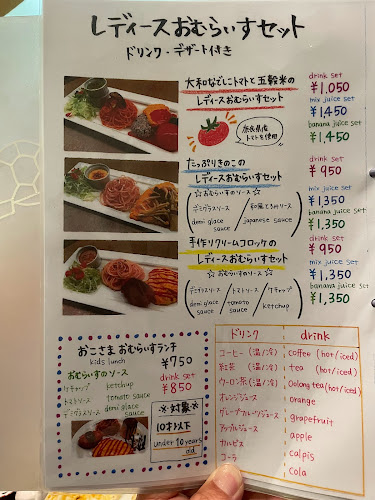 レディースおむらいすセット
ドリンク・デザート付き
大和なでしこトマトと五穀米の
レディースおむらいすセット
奈良県産
トマトを使用
drink set
¥1,050
mix juice set
¥1,450
banana juice set
¥1,450
たっぷりきのこの
レディースおむらいすセット
☆おむらいすのソース☆
デミグラスソース
demi glace
sauce
和風しょうゆソース
japanese
sauce
drink set
¥950
mix juice set
¥1,350
banana juice set
¥1,350
手作りクリームコロッケの
レディースおむらいすセット
☆おむらいすのソース☆
デミグラスソース
demi glace
sauce
トマトソース
tomato
sauce
ケチャップ
ketchup
drink set
¥950
mix juice set
¥1,350
banana juice set
¥1,350
おこさまおむらいすランチ
kids lunch
¥750
drink set
¥850
おむらいすのソース
ケチャップ ketchup
トマトソース tomato sauce
デミグラスソース demi glace
sauce
※対象※
10才以下
under 10 years
old
ドリンク drink
コーヒー(温/冷) coffee (hot/iced)
紅茶(温/冷) tea (hot/iced)
ウーロン茶(温/冷) Oolong tea (hot/iced)
オレンジジュース orange
グレープフルーツジュース grapefruit
アップルジュース apple
カルピス calpis
コーラ cola